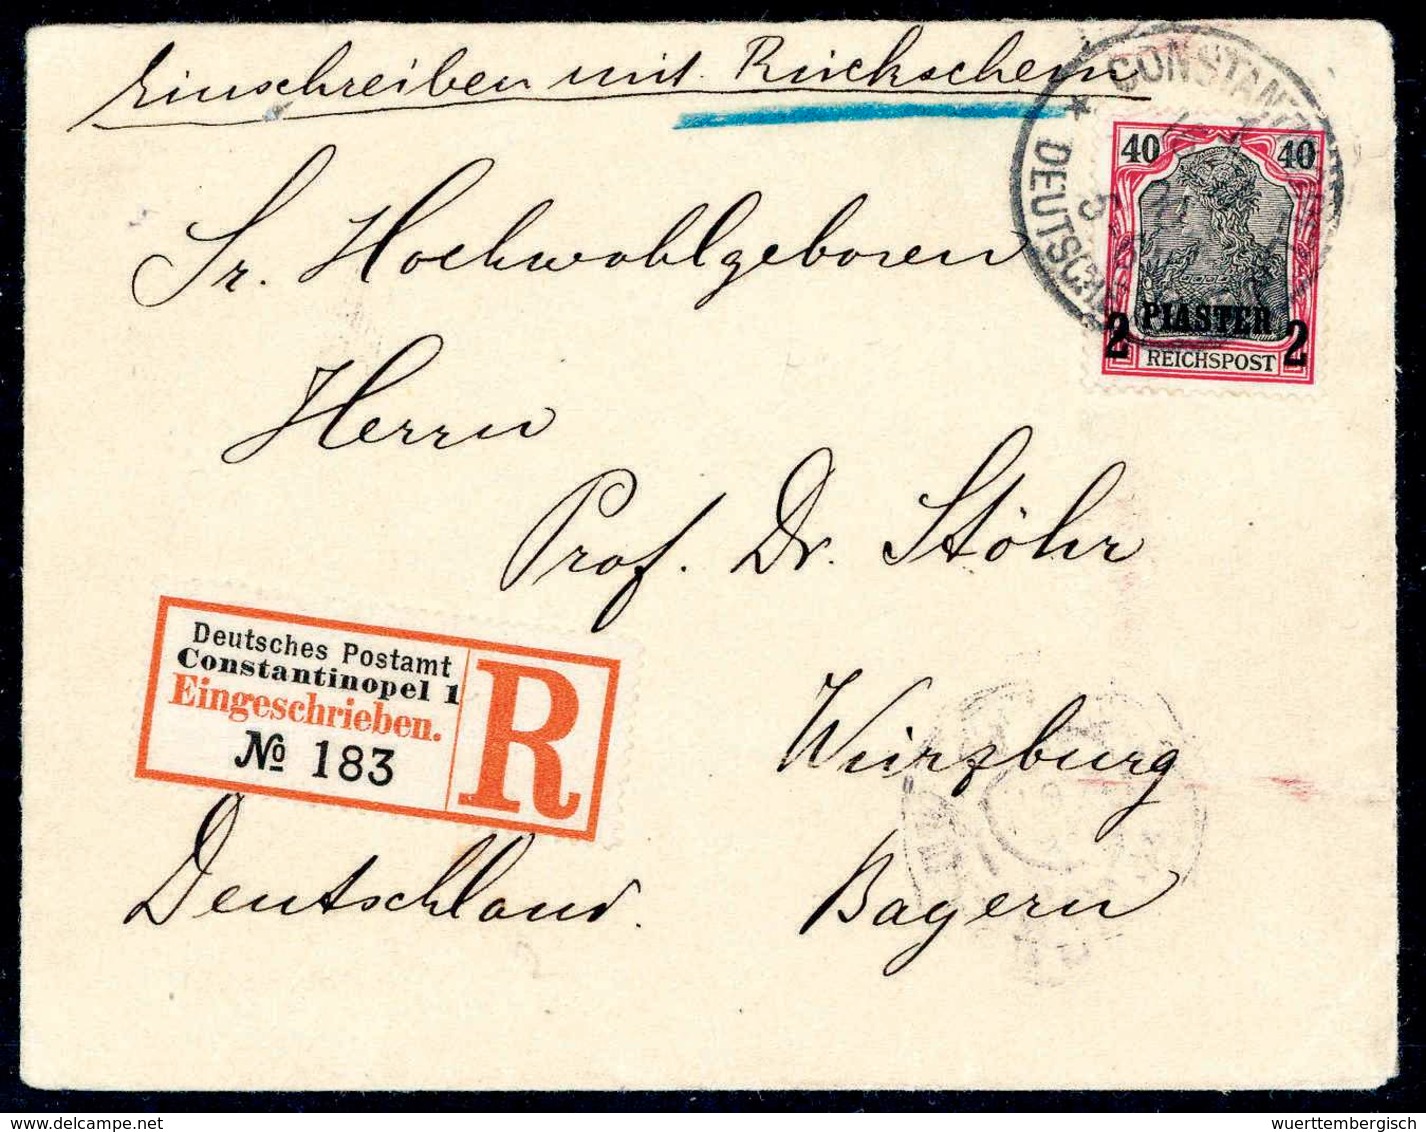 Einschreiben mit Rückschein
CONSTANTINOPEL
DEUTSCHE
40 40
2 PIASTER 2
REICHSPOST
Sr. Hochwohlgeboren
Herrn
Prof. Dr. Stöhr
Deutsches Postamt
Constantinopel 1
Eingeschrieben.
№ 183
R
Würzburg
Bayern
Deutschland.
www.delcampe.net
wuerttembergisch